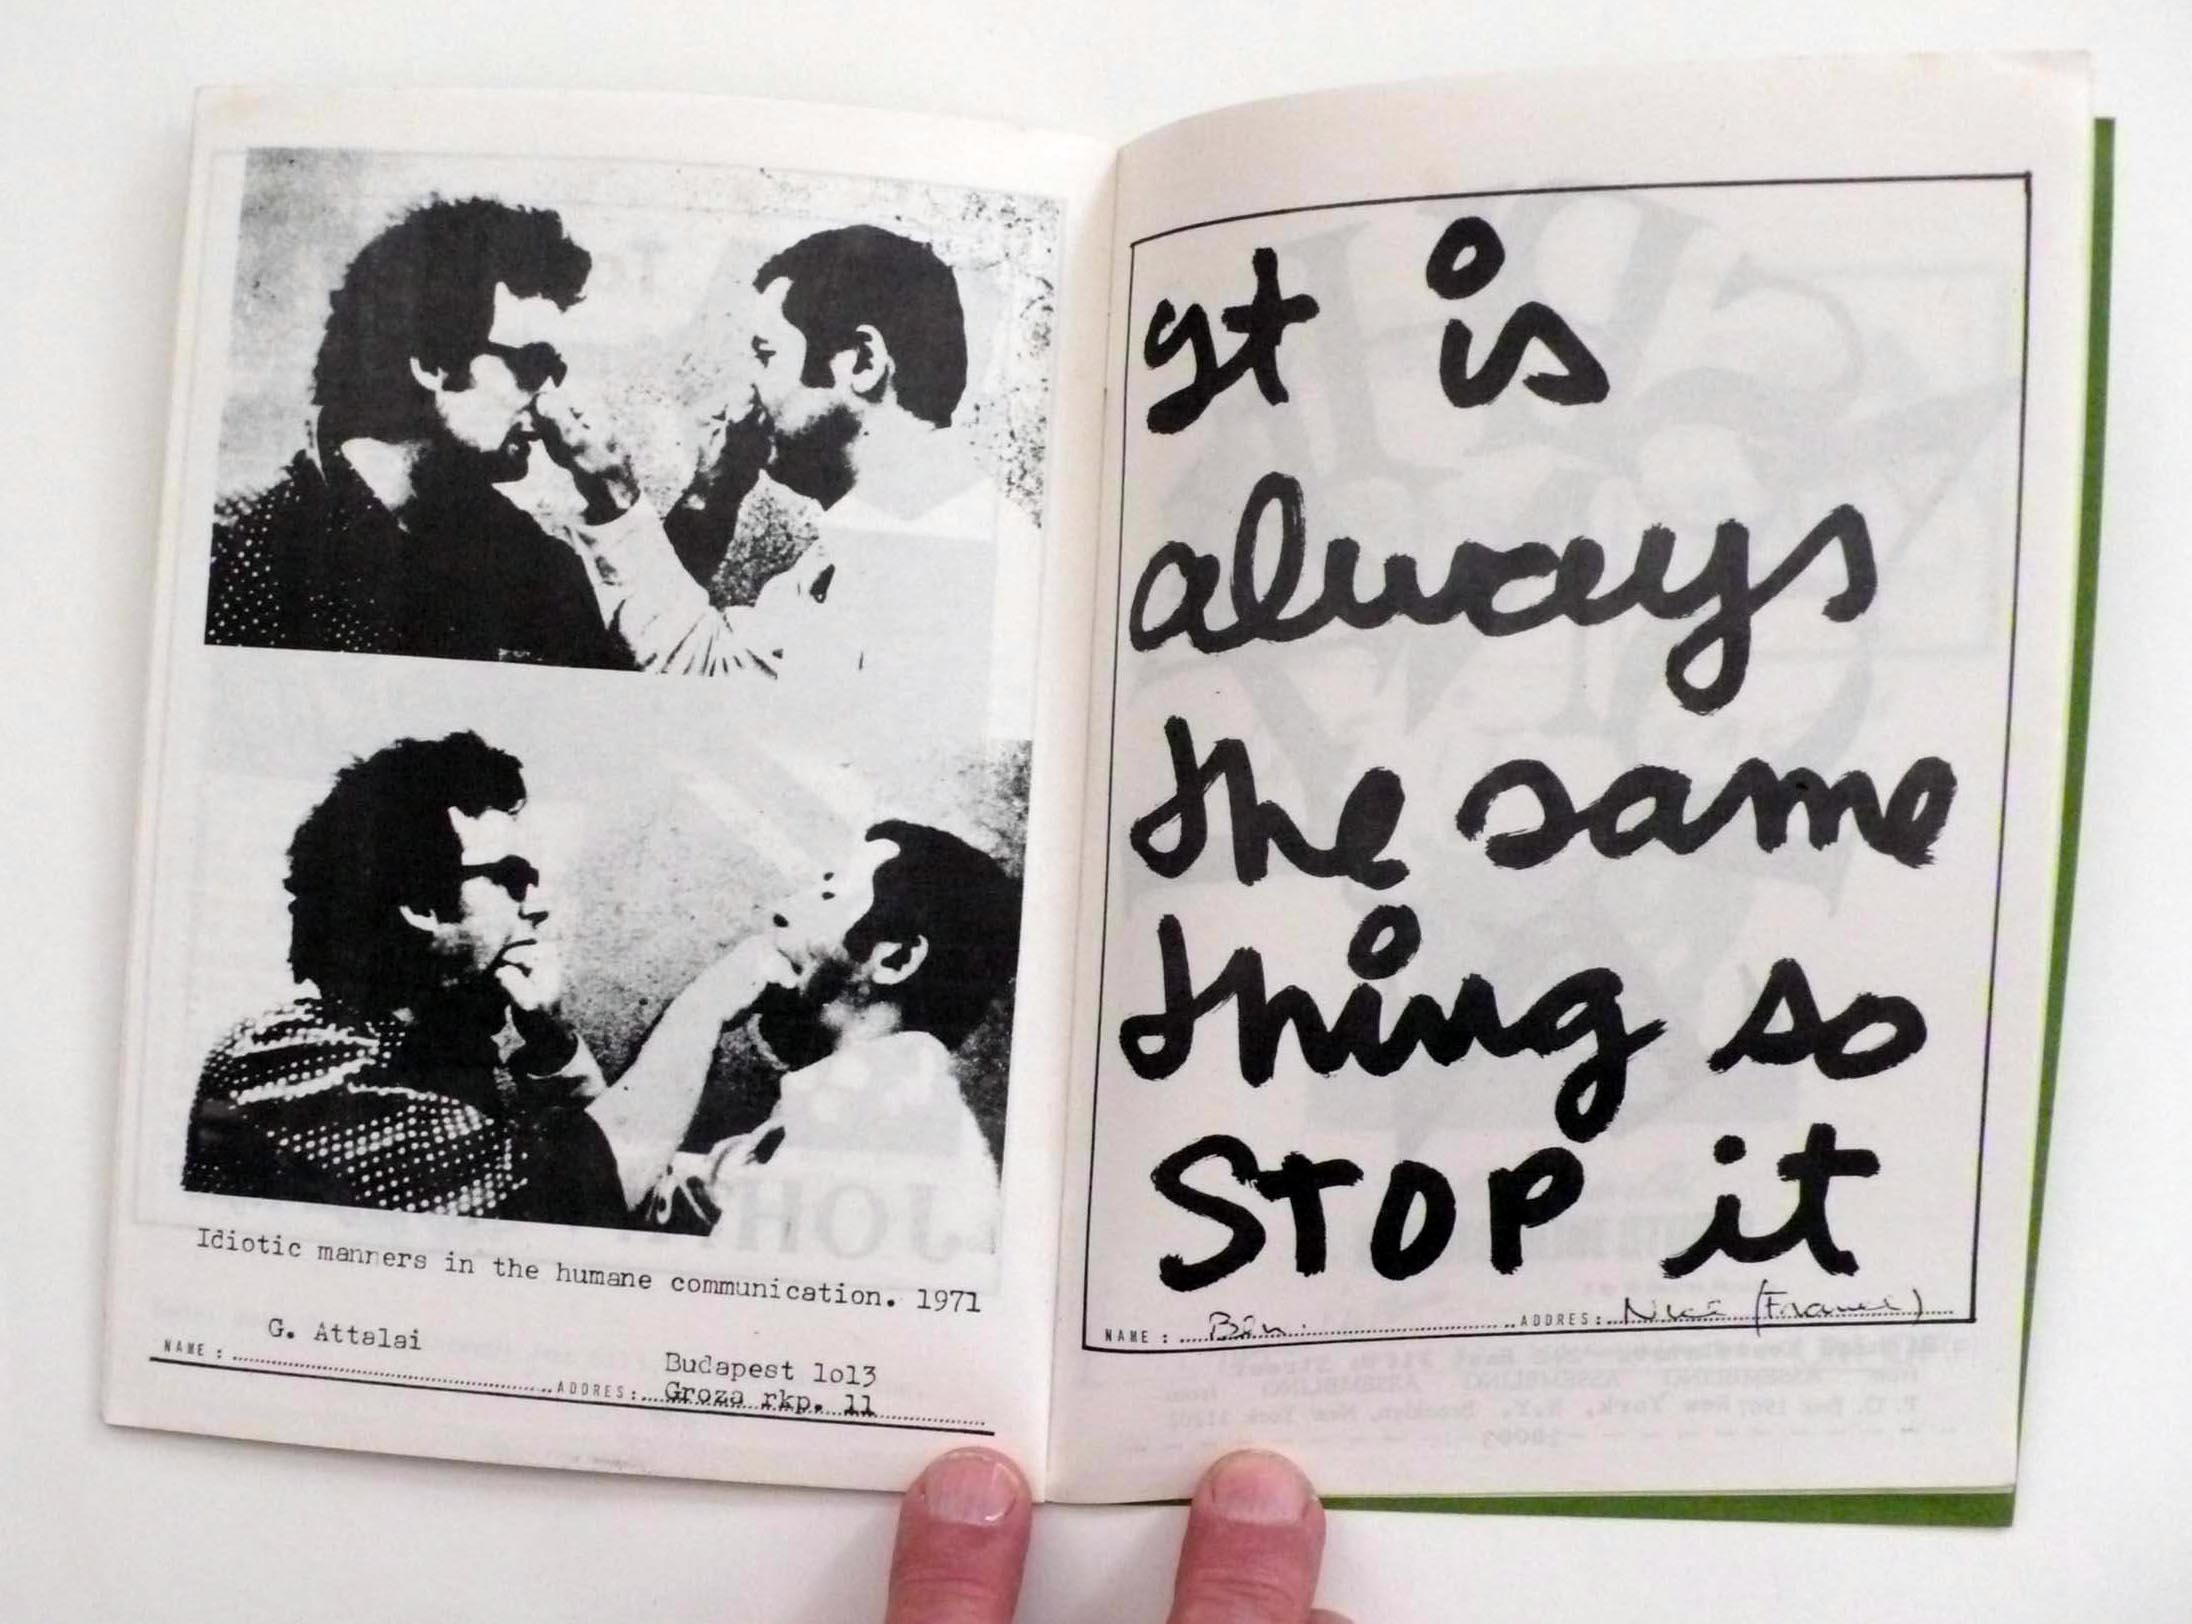 Idiotic manners in the humane communication. 1971
G. Attalai
NAME :
Budapest 1o13
ADDRES: Groza rkp. 11
It is
always
the same
thing so
STOP it
NAME : Ben. ADDRES: Nice (France)